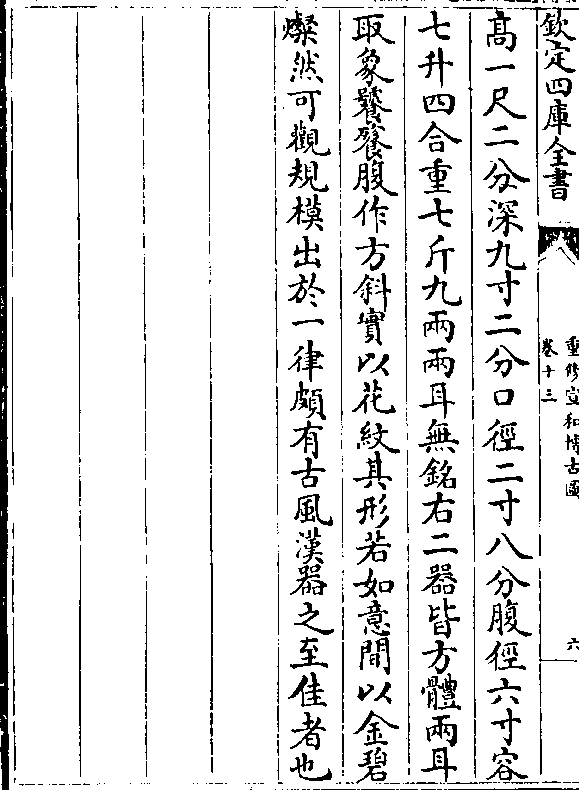 欽定四庫全書
重修宣和博古圖
卷十三
六
高一尺二分深九寸二分口徑二寸八分腹徑六寸容
七升四合重七斤九兩兩耳無銘右二器皆方體兩耳
取象饕餮腹作方斜實以花紋其形若如意間以金碧
燦然可觀規模出於一律頗有古風漢器之至佳者也